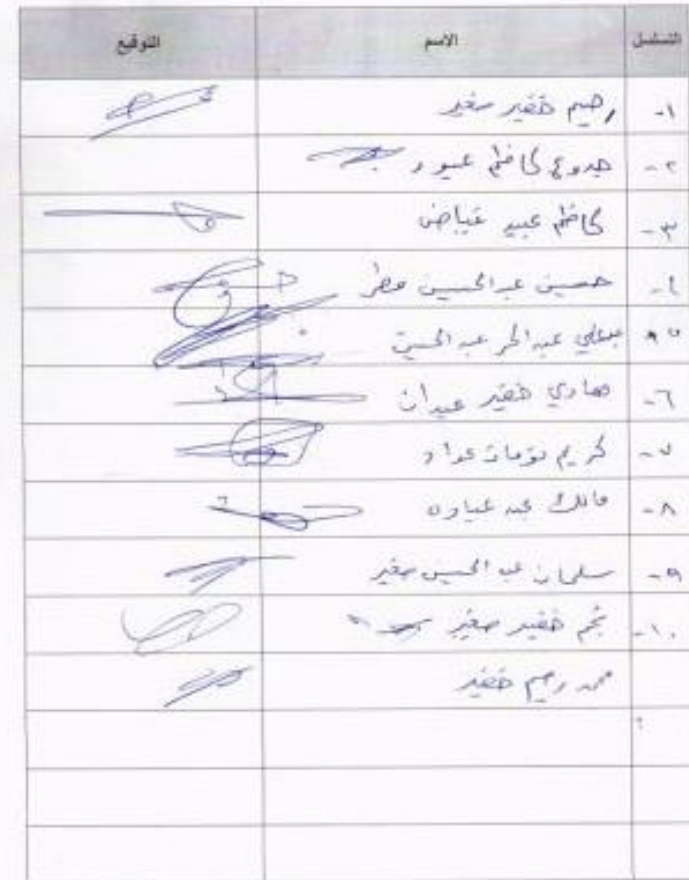 التسلسل الاسم التوقيع
١- رحيم خضير صغير
٢- هدوع كاظم عبود
٣- كاظم عبيد عياض
٤- حسين عبدالحسين مطر
٥ عبدالحر عبدالحسين
٦- هادي خضير عبدان
٧- كريم
٨- مالك عبد
٩- سلمان عبد الحسين صغير
١٠- نجم خضير صغير
محمد رحيم خضير